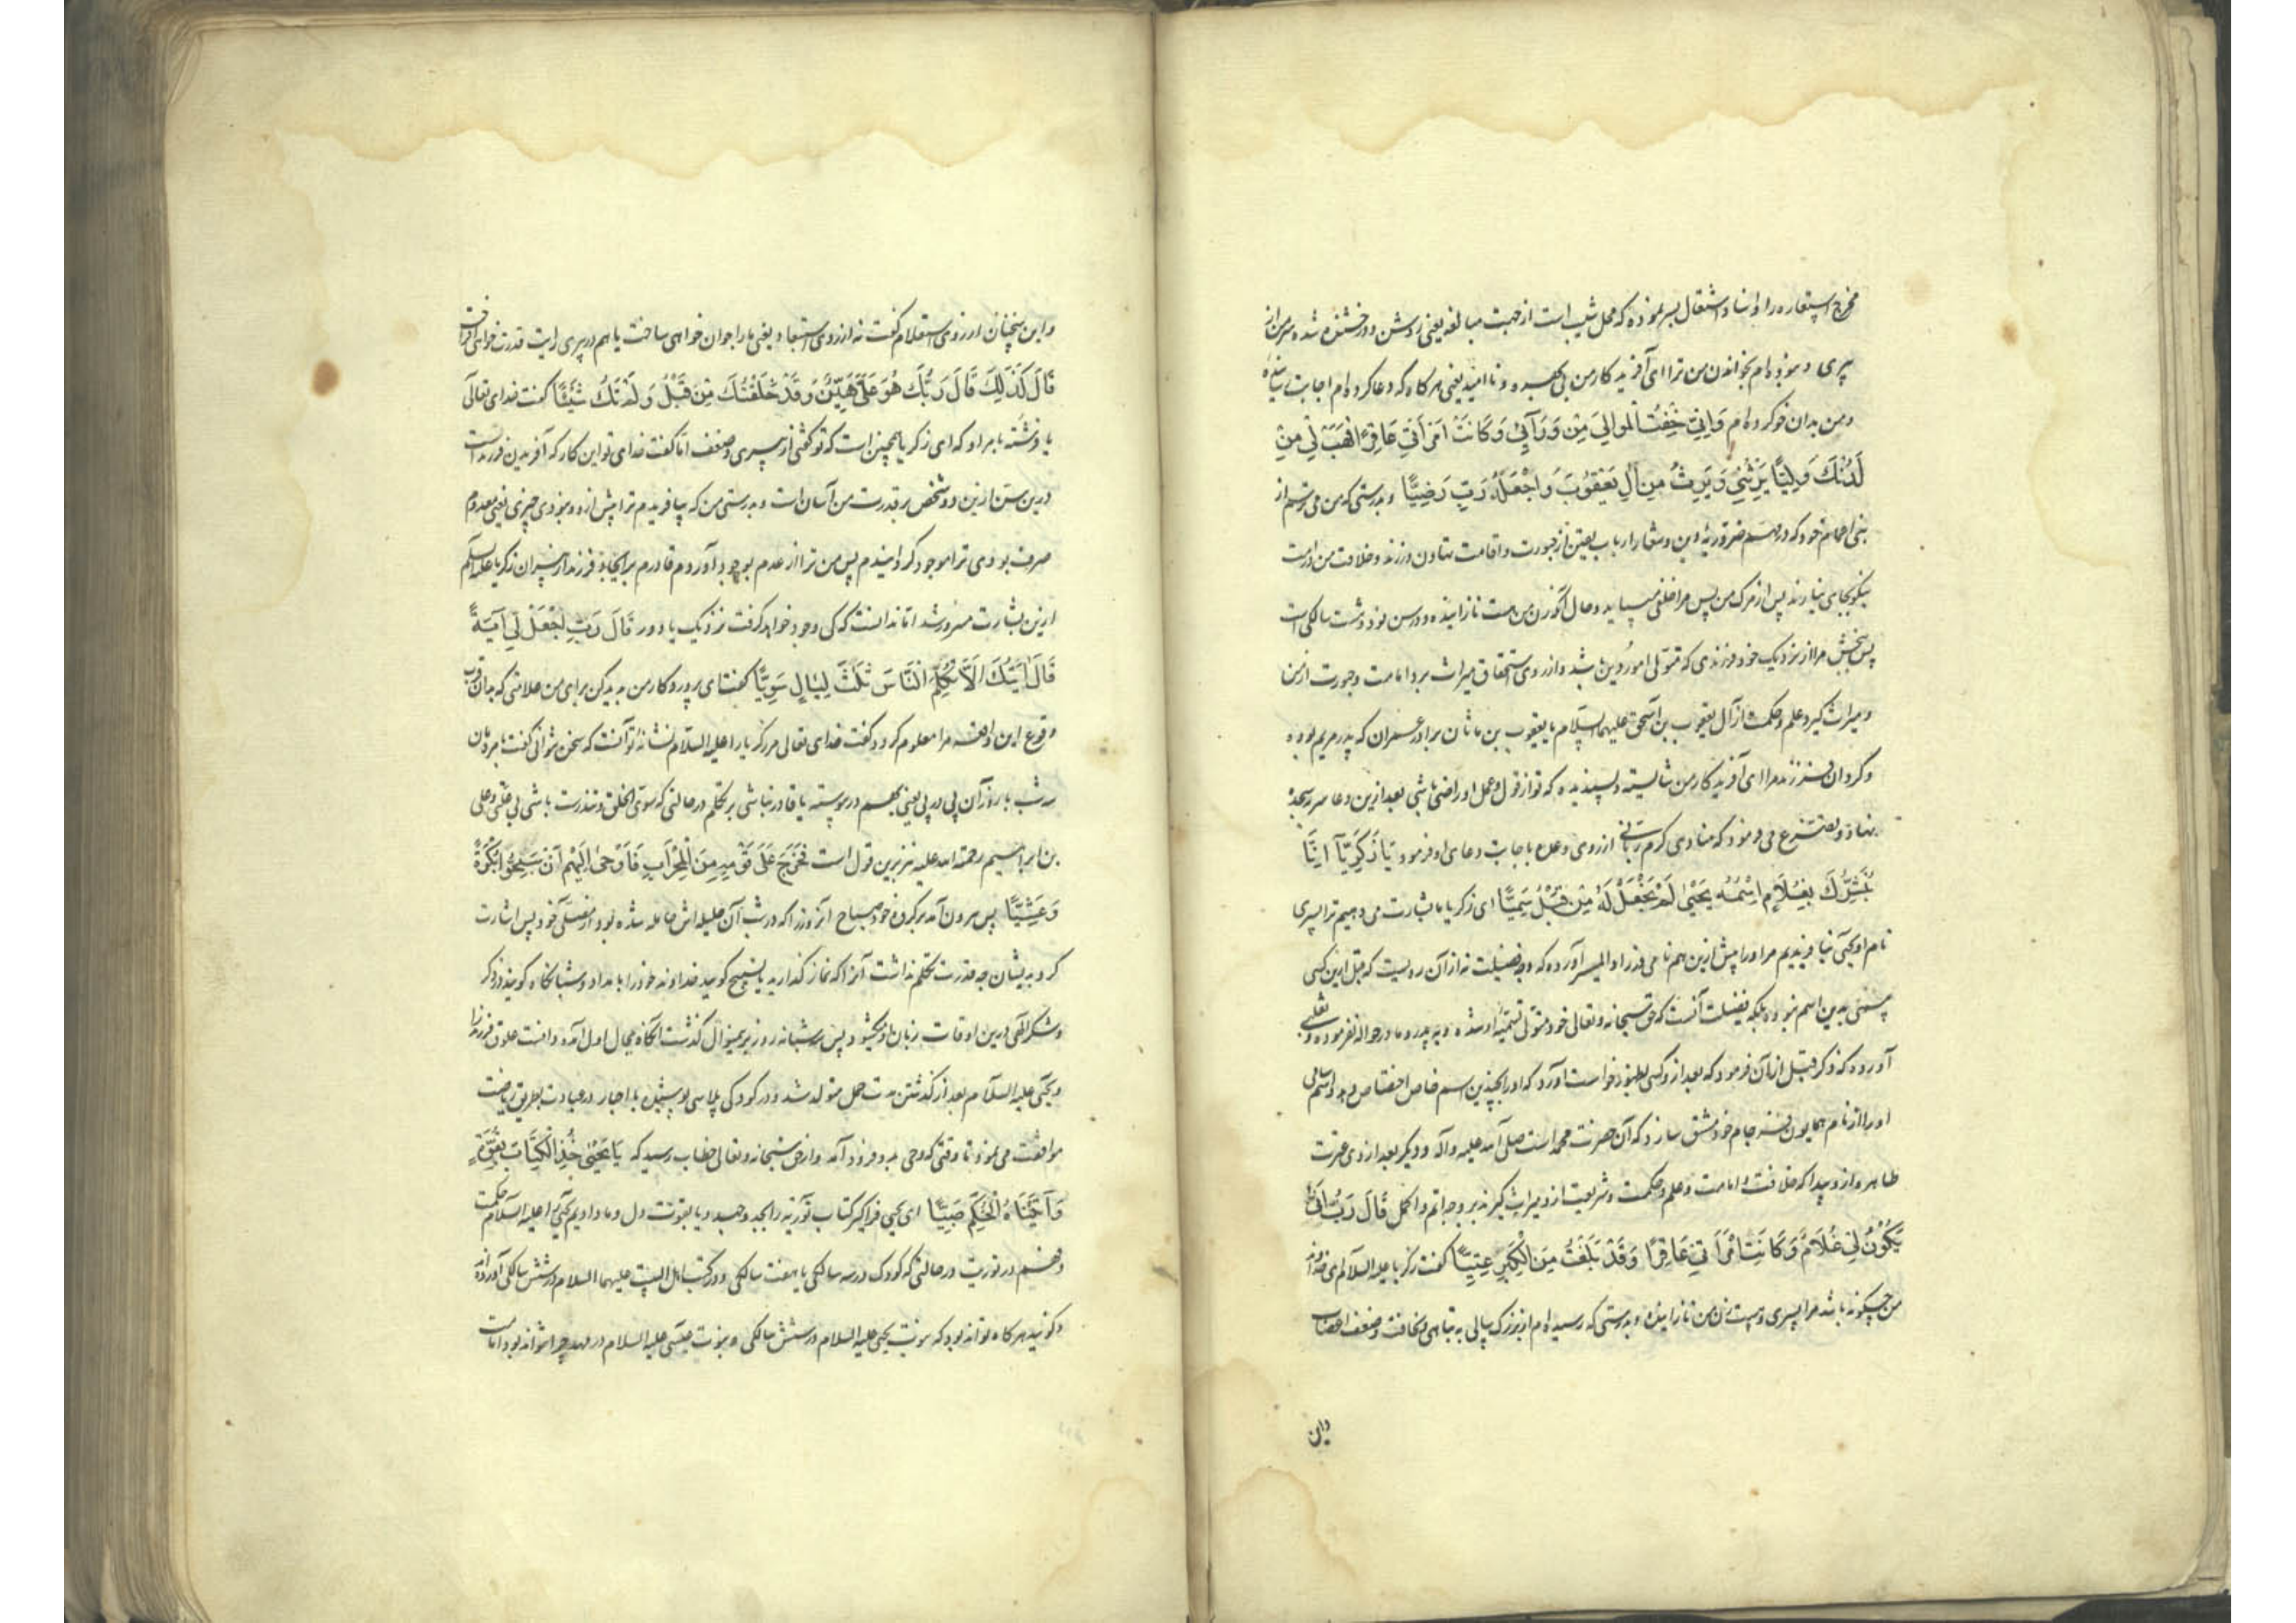 مخرج استعاره را و اسناد اشتعال بسر نموده که محل شیب است از جهت مبالغه یعنی روشن و درخشنده شد سر من از
پیری و نبوده‌ام بخواندن من ترا ای آفریدکار من بی بهره و نا امید یعنی هر کاه که دعا کرده‌ام اجابت
و من بدان خو کرده‌ام وَاِنّی خِفْتُ الْمَوالِیَ مِنْ وَرَآئی وَکَانَتْ امْرَأَتی عَاقِرًا فَهَبْ لی مِنْ
لَدُنْکَ وَلِیًّا یَرِثُنی وَیَرِثُ مِنْ اٰلِ یَعْقُوبَ وَاجْعَلْهُ رَبِّ رَضِیًّا و بدرستی که من می‌ترسم از
بنی اعمام خود که در مهم ضروریه دین و شعار ارباب یقین از حبورت و اقامت تهاون ورزند و خلافت من در امت
نیکو بجای نیاورند پس از مرک من پس مرا خلفی میباید و حال آنکه زن من هست نازاینده و در سن نود و هشت سالکی است
پس ببخش مرا از نزدیک خود فرزندی که متولی امور دین باشد و از روی استحقاق میراث برد امامت و حبورت از من
و میراث کیرد علم و حکمت از آل یعقوب بن اسحق علیهما السلام یا یعقوب بن ماثان برادر عمران که پدر مریم بوده
و کردان فرزند مرا ای آفریدکار من شایسته و پسندیده که تو از قول و عمل او راضی باشی بعد از این دعا سر بسجده
نهاد و تضرع می‌نمود که منادی کرم ربانی از روی وعده باجابت دعای او فرمود یَا زَکَرِیَّآ اِنَّا
نُبَشِّرُکَ بِغُلَامٍ اسْمُهُ یَحْیٰی لَمْ نَجْعَلْ لَهُ مِنْ قَبْلُ سَمِیًّا ای زکریا ما بشارت می‌دهیم ترا بپسری
نام او یحیی نیافریدیم مر او را پیش ازین هم نامی در زاد المسیر آورده که وجه فضیلت نه از آن رویست که قبل ازین کسی
مسمی بدین اسم نبوده بلکه فضیلت آنست که حق سبحانه و تعالی خود متولی تسمیه او شده و به پدر و مادر حواله نفرموده و ثعلبی
آورده که ذکر قبل از آن فرمود که بعد از و کسی بظهور خواست آورد که او را بچندین اسم خاص اختصاص دهد و اسم سامی
او را از نام همایون فرجام خود مشتق سازد که آن حضرت محمد است صلی الله علیه و آله و دیکر بعد از وی عترت
طاهره از و پیدا که خلافت و امامت و علم و حکمت و شریعت از و میراث کیرند بر وجه اتم و اکمل قَالَ رَبِّ اَنّٰی
یَکُوْنُ لی غُلَامٌ وَکَانَتِ امْرَأَتی عَاقِرًا وَقَدْ بَلَغْتُ مِنَ الْکِبَرِ عِتِیًّا کفت زکریا علیه السلام ای خداوند
من چکونه باشد مرا پسری و هست زن من نازاینده و بدرستی که رسیده‌ام از بزرک سالی به تباهی و نحافت و ضعف اعضا
و این
و این سخنان از روی استعلام کفت نه از روی استبعاد یعنی ما را جوان خواهی ساخت یا هم در پیری این قدرت خواهی
قَالَ کَذٰلِکَ قَالَ رَبُّکَ هُوَ عَلَیَّ هَیِّنٌ وَقَدْ خَلَقْتُکَ مِنْ قَبْلُ وَلَمْ تَکُ شَیْئًا کفت خدای تعالی
یا فرشته بامر او که ای زکریا همچنین است که تو کفتی از پیری و ضعف اما کفت خدای تو این کار که آفریدن فرزند است
درین سن ازین دو شخص بر قدرت من آسان است و بدرستی من که بیافریدم ترا پیش ازو و نبودی چیزی یعنی معدوم
صرف بودی ترا موجود کردانیدم پس من ترا از عدم بوجود آوردم قادرم بر ایجاد فرزند از پیران زکریا علیه السلام
ازین بشارت مسرور شد اما ندانست که کی وجود خواهد کرفت نزدیک یا دور قَالَ رَبِّ اجْعَلْ لی اٰیَةً
قَالَ اٰیَتُکَ اَلَّا تُکَلِّمَ النَّاسَ ثَلٰثَ لَیَالٍ سَوِیًّا کفت ای پروردکار من پدید کن برای من علامتی که بدان قرب
وقوع این واقعه مرا معلوم کردد کفت خدای تعالی مر زکریا را علیه السلام نشانه تو آنست که سخن نتوانی کفت با مردمان
سه شب با روز آن پی در پی یعنی بهم در پیوسته یا قادر نباشی بر تکلم در حالتی که سوی الخلق و تندرست باشی بی علتی و علی
بن ابراهیم رحمة الله علیه نیز برین قول است فَخَرَجَ عَلٰی قَوْمِهِ مِنَ الْمِحْرَابِ فَاَوْحٰی اِلَیْهِمْ اَنْ سَبِّحُوا بُکْرَةً
وَعَشِیًّا پس بیرون آمد بر کروه خود صباح آن روز را که در شب آن حلیله اش حامله شده بود از مصلی خود پس اشارت
کرد بدیشان چه قدرت تکلم نداشت آنرا که نماز کذارید یا تسبیح کویید خداوند خود را بامداد و شبانکاه کویند در ذکر
و شکر الهی درین اوقات زبان او میکشود پس سه شبانه روز برین منوال کذشت آنکاه بحال اول آمده دانست علوق فرزند را
و یحیی علیه السلام بعد از کذشتن مدت حمل متولد شد و در کودکی پلاسی پوشیده با احبار در عبادت بطریق ریاضت
موافقت می‌نمود تا وقتی که وحی بدو فرود آمد و از حق سبحانه و تعالی خطاب رسید که یَا یَحْیٰی خُذِ الْکِتَابَ بِقُوَّةٍ
وَاٰتَیْنَاهُ الْحُکْمَ صَبِیًّا ای یحیی فراکیر کتاب توریة را بجد و جهد و یا بقوت دل و ما دادیم یحیی را علیه السلام حکمت
و فهم در توریت در حالتی که کودک در سه سالکی یا هفت سالکی و در کتب اهل البیت علیهما السلام در شش سالکی آورده‌اند
و کویند هر کاه تواند بود که نبوت یحیی علیه السلام در شش سالکی و نبوت عیسی علیه السلام در مهد چرا نتواند بود امامت